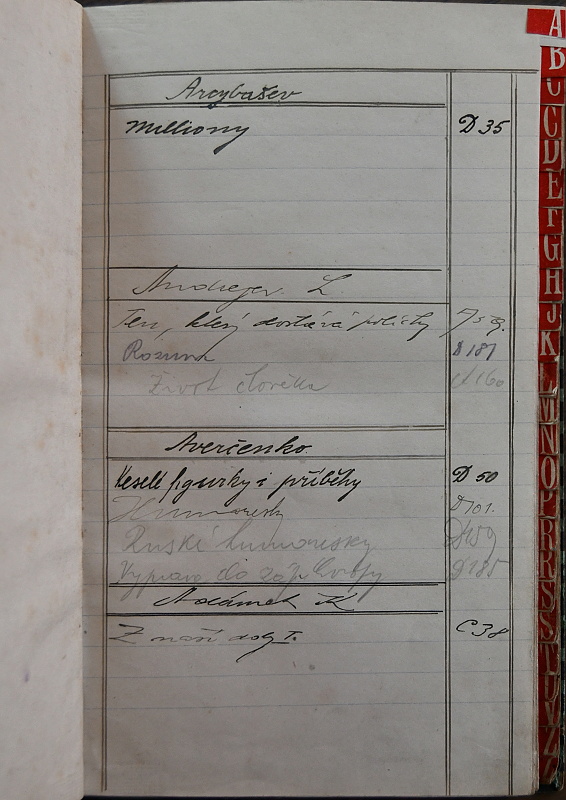 Arcybašev
Milliony D 35
Andrejev L
Ten, který dostává políčky
Rozum D 181
Život člověka A 160
Averčenko
Veselé figurky i příběhy D 50
Humoresky D 101.
Ruské humoresky D 159
Výprava do záp. Evropy D 185
Adámek K
Z naší doby I. C 38
A
B
C
Č
D
E
F
G
H
J
K
L
M
N
O
P
R
Ř
S
Š
T
U
V
Z